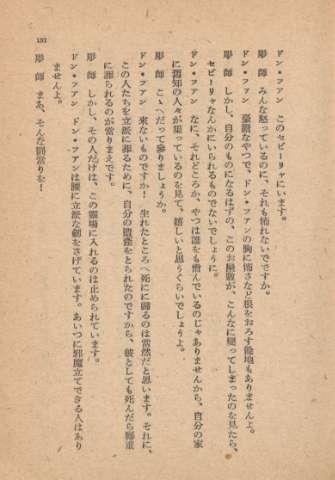 132
ドン・フアン　このセビーリャにいます。
彫　師　みんな怒っているのに、それも怖れないですか。
ドン・フアン　豪膽なやつで、ドン・フアンの胸に怖さなど根をおろす餘地もありませんよ。
彫　師　しかし、自分のものになるはずの、このお屋敷が、こんなに變ってしまったのを見たら、
セビーリャなんかにいられるものでないでしょうに。
ドン・フアン　なに、それどころか、やつは誰をも憎んでいるのじゃありませんから、自分の家
に舊知の人々が集っているのを見て、嬉しいと思うくらいでしょうよ。
彫　師　こゝへだって參りましょうか。
ドン・フアン　來ないものですか！　生れたところへ死にに歸るのは當然だと思います。それに、
この人たちを立派に葬るために、自分の遺產をとられたのですから、彼としても死んだら鄭重
に葬られるのが當りまえです。
彫　師　しかし、その人だけは、この靈場に入れるのは止められています。
ドン・フアン　ドン・フアンは腰に立派な劍をさげています。あいつに邪魔立てできる人はあり
ませんよ。
彫　師　まあ、そんな罰當りを！